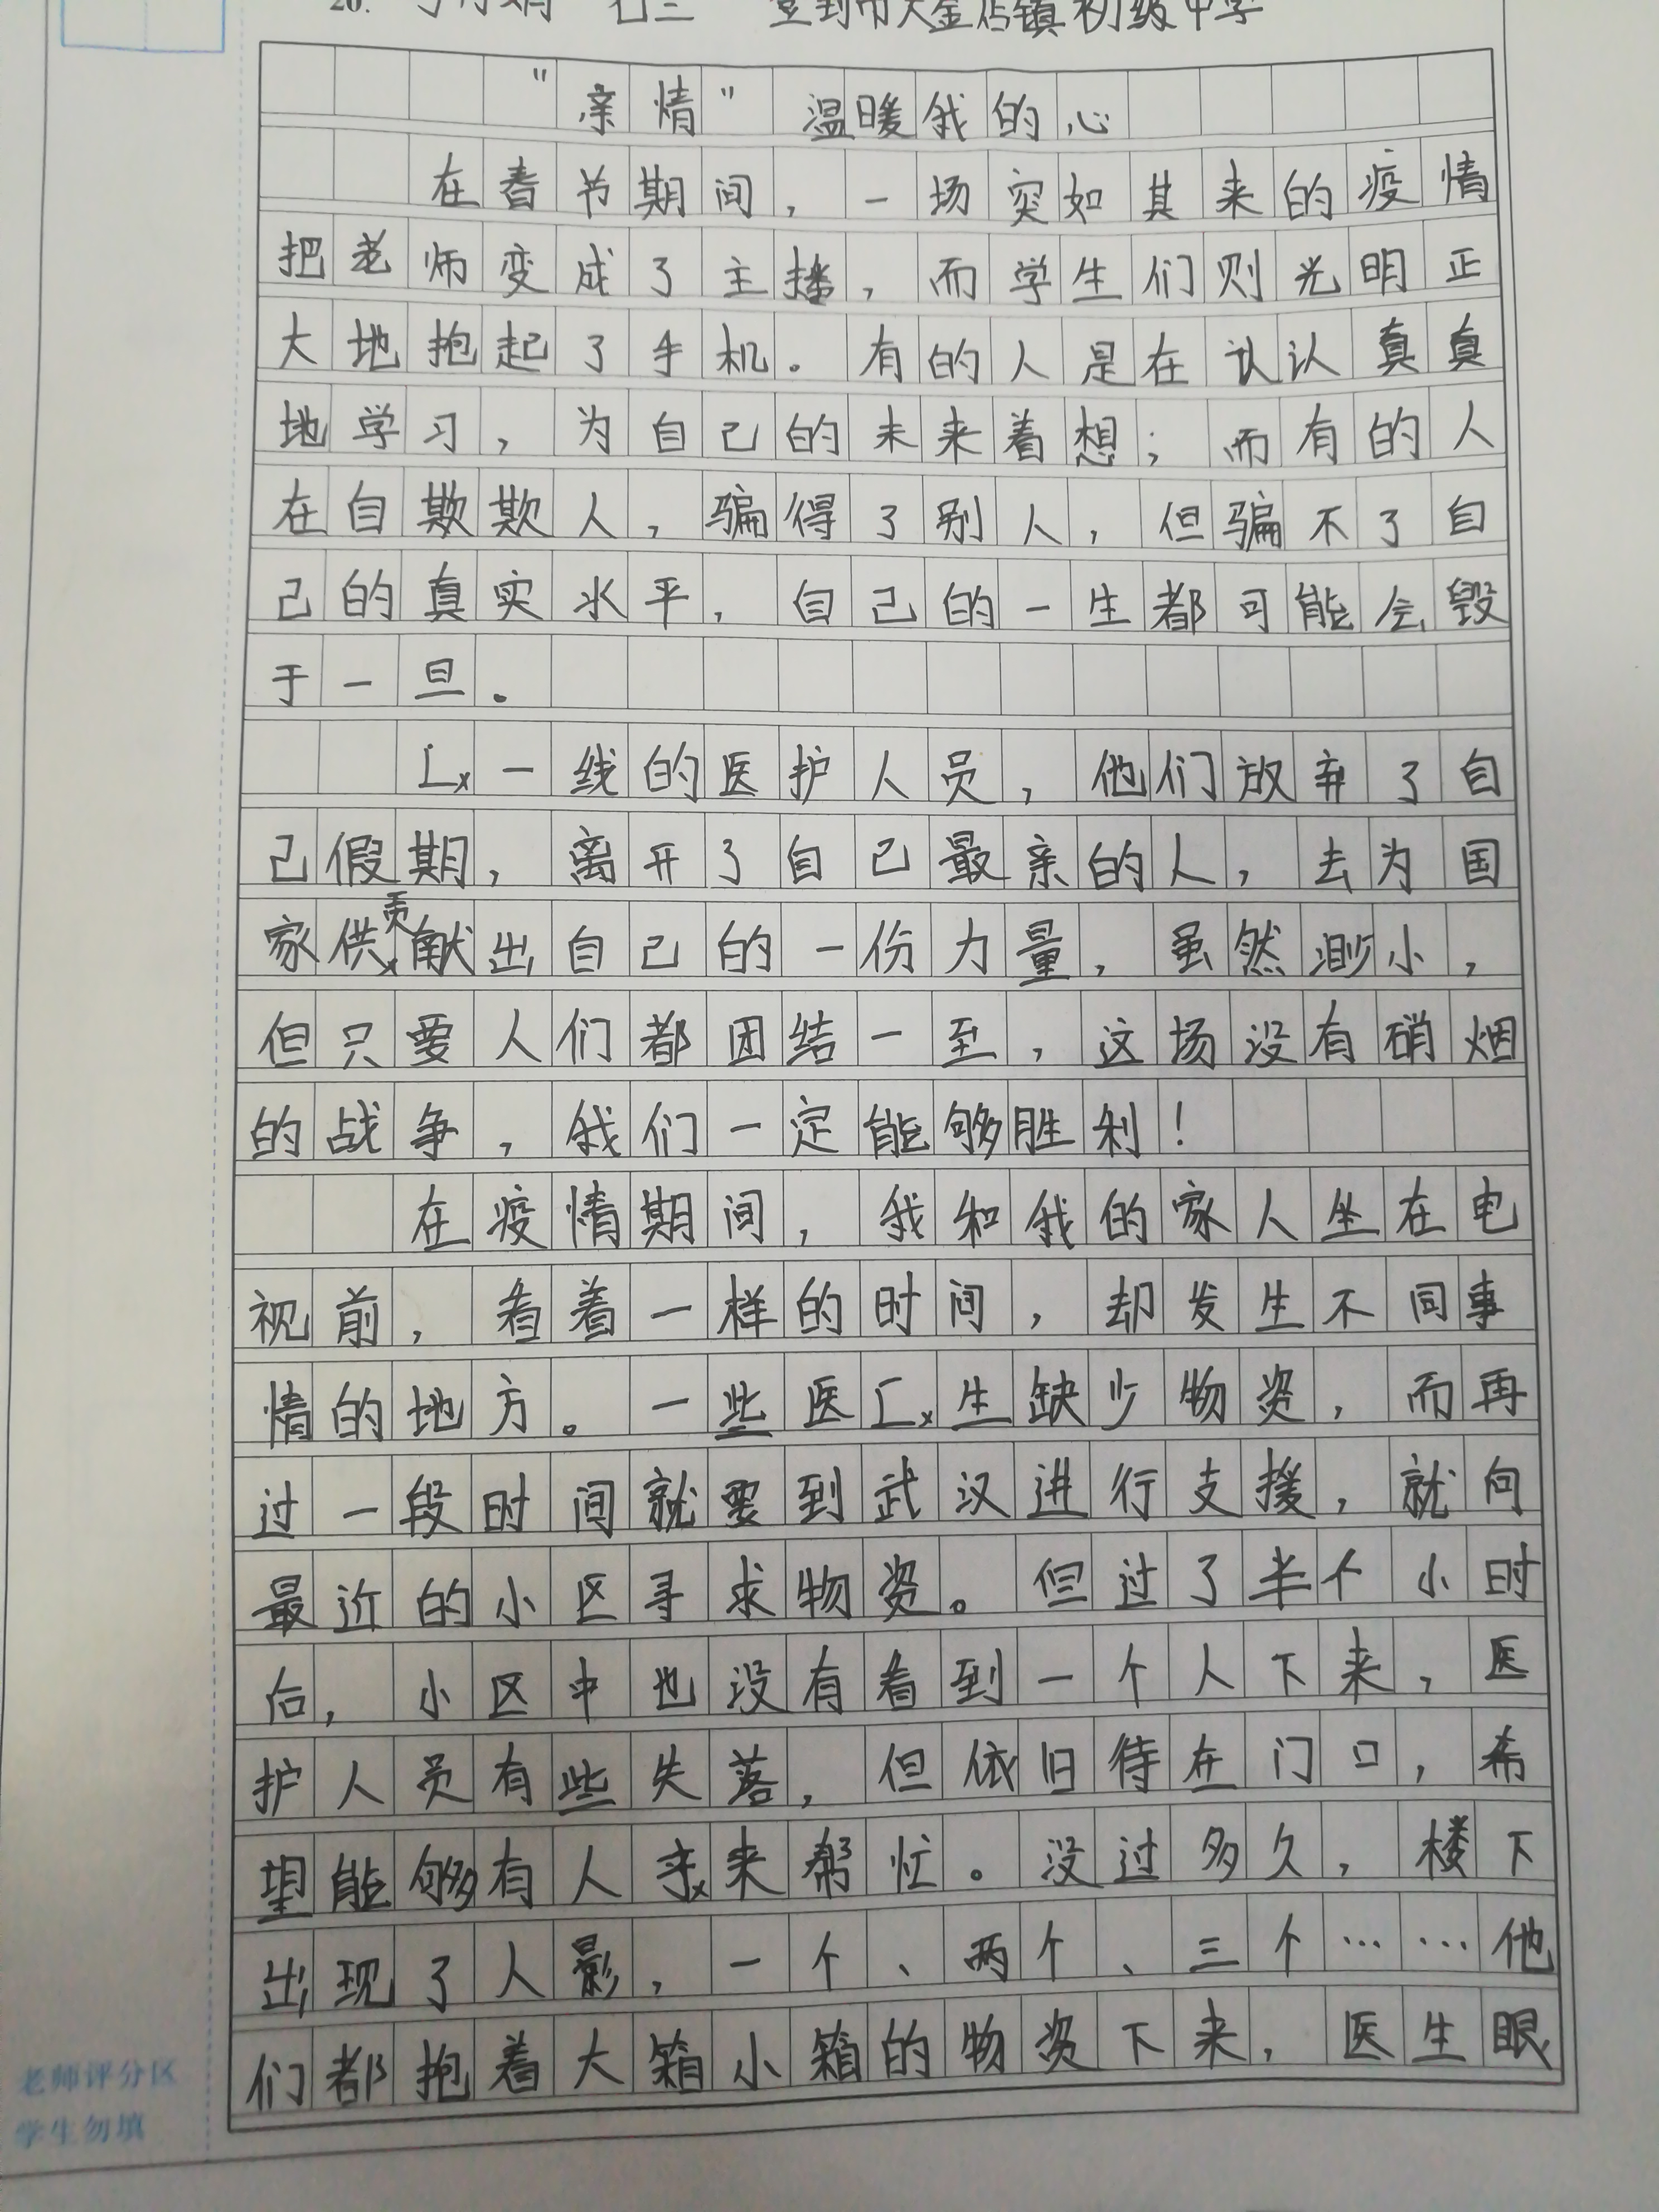 20.
登封市大金店镇初级中学
"亲情"温暖我的心
在春节期间，一场突如其来的疫情
把老师变成了主播，而学生们则光明正
大地抱起了手机。有的人是在认认真真
地学习，为自己的未来着想；而有的人
在自欺欺人，骗得了别人，但骗不了自
己的真实水平，自己的一生都可能会毁
于一旦。
一线的医护人员，他们放弃了自
己假期，离开了自己最亲的人，去为国
家贡献出自己的一份力量，虽然渺小，
但只要人们都团结一至，这场没有硝烟
的战争，我们一定能够胜利！
在疫情期间，我和我的家人坐在电
视前，看着一样的时间，却发生不同事
情的地方。一些医生缺少物资，而再
过一段时间就要到武汉进行支援，就向
最近的小区寻求物资。但过了半个小时
后，小区中也没有看到一个人下来，医
护人员有些失落，但依旧待在门口，希
望能够有人来帮忙。没过多久，楼下
出现了人影，一个、两个、三个……他
们都抱着大箱小箱的物资下来，医生眼
老师评分区
学生勿填